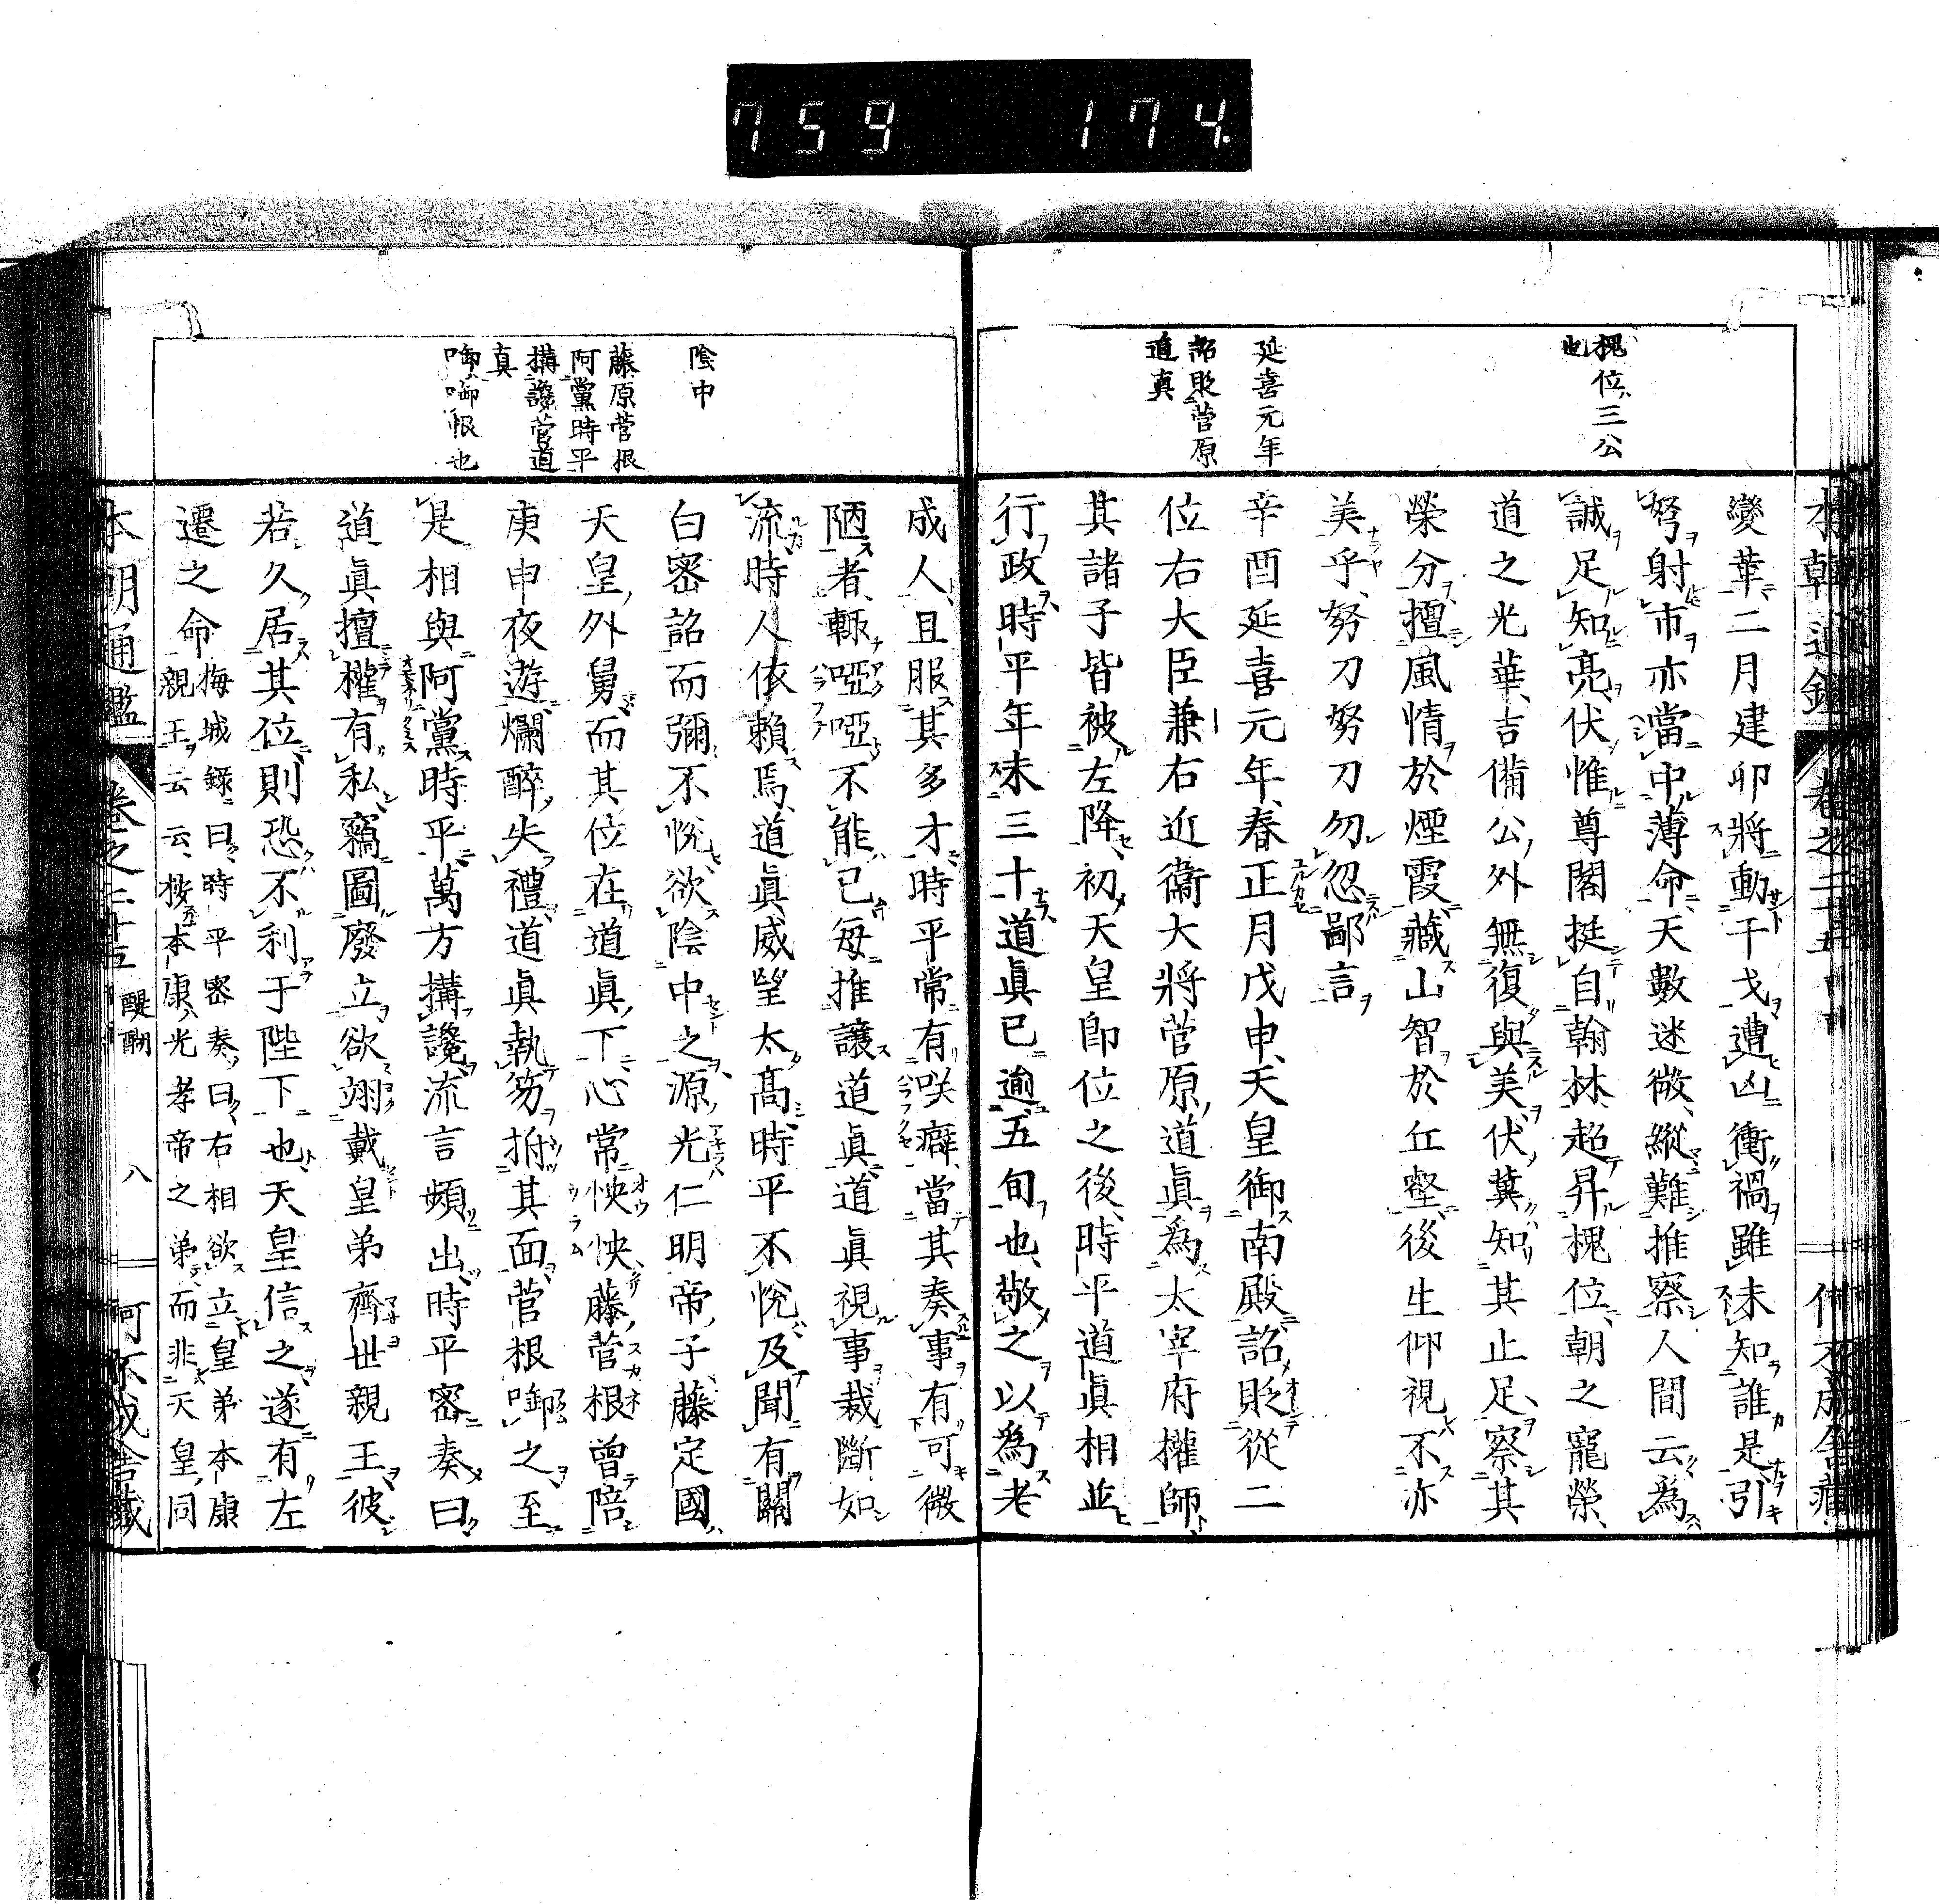 759 174.
槐位三公
也
延喜元年
詔貶菅原
道真
變華二月建卯將動干戈遭凶衝禍雖未知誰是引
弩射市亦當中薄命天數迷微縱難推察人間云爲
誠足知亮伏惟尊閣挺自翰林超昇槐位朝之寵榮
道之光華吉備公外無復與美伏冀知其止足察其
榮分擅風情於煙霞藏山智於丘壑後生仰視不亦
美乎努力努力勿忽鄙言
辛酉延喜元年春正月戊申天皇御南殿詔貶從二
位右大臣兼右近衞大將菅原道眞爲太宰府權帥
其諸子皆被左降初天皇即位之後時平道眞相並
行政時平年未三十道眞已逾五旬也敬之以爲老
陰中
藤原菅根
阿黨時平
搆讒菅道
真
啣啣恨也
成人且服其多才時平常有咲癖當其奏事有可微
陋者輙啞啞不能已每推讓道眞道眞視事裁斷如
流時人依賴焉道眞威望太高時平不悅及聞有關
白密詔而彌不悅欲陰中之源光仁明帝子藤定國
天皇外舅而其位在道眞下心常怏怏藤菅根曾陪
庚申夜遊爛醉失禮道眞執笏拊其面菅根啣之至
是相與阿黨時平萬方搆讒流言頻出時平密奏曰
道眞擅權有私竊圖廢立欲翊戴皇弟齊世親王彼
若久居其位則恐不利于陛下也天皇信之遂有左
遷之命
梅城錄曰時平密奏曰右相欲立皇弟本康
親王云云按本康光孝帝之弟而非天皇同
本朝通鑑
卷之二十五
醍醐
八